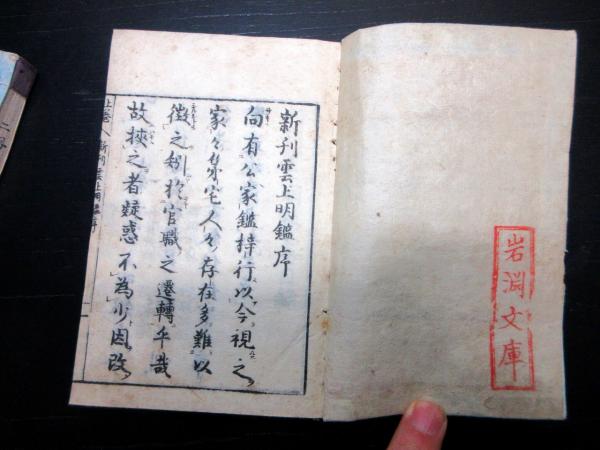 岩淵文庫
新刊雲上明鑑序
向有公家鑑梓行以今視之
家々第宅人々存在多難以
徴之矧於官職之遷轉乎哉
故挾之者疑惑不為少因改
上巻 新刊雲上明鑑序